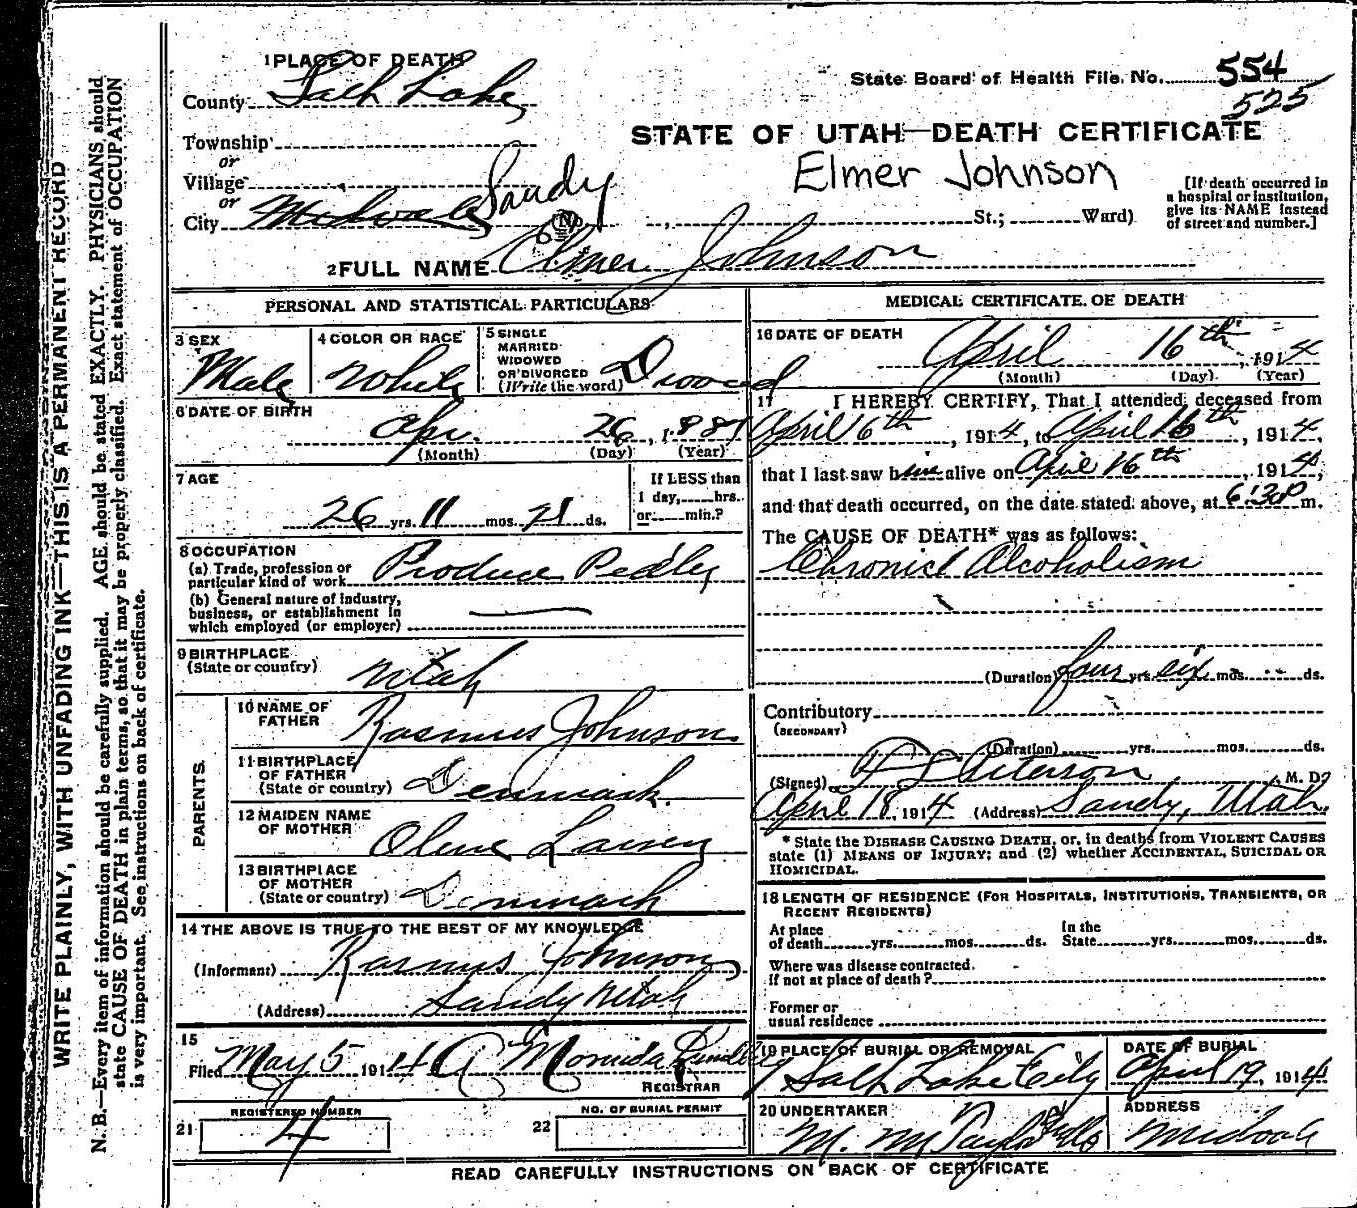 1 PLACE OF DEATH
State Board of Health File No. 554
525
County Salt Lake
Township
or
Village
or
City Midvale Sandy
STATE OF UTAH—DEATH CERTIFICATE
Elmer Johnson
No. , St.; Ward)
[If death occurred in
a hospital or institution,
give its NAME instead
of street and number.]
2 FULL NAME Elmer Johnson
PERSONAL AND STATISTICAL PARTICULARS
3 SEX
Male
4 COLOR OR RACE
White
5 SINGLE
MARRIED
WIDOWED
OR DIVORCED
(Write the word)
6 DATE OF BIRTH
Apr. 26, 1887
(Month) (Day) (Year)
7 AGE
26 yrs. 11 mos. 21 ds.
If LESS than
1 day, hrs.
or min.?
8 OCCUPATION
(a) Trade, profession or
particular kind of work Produce Pedler
(b) General nature of industry,
business, or establishment in
which employed (or employer) —
9 BIRTHPLACE
(State or country) Utah
PARENTS.
10 NAME OF
FATHER Rasmus Johnson
11 BIRTHPLACE
OF FATHER
(State or country) Denmark.
12 MAIDEN NAME
OF MOTHER Olene Larsen
13 BIRTHPLACE
OF MOTHER
(State or country) Denmark
14 THE ABOVE IS TRUE TO THE BEST OF MY KNOWLEDGE
(Informant) Rasmus Johnson
(Address) Sandy Utah
15
Filed May 5 1914 A
REGISTRAR
REGISTERED NUMBER
21 4
NO. OF BURIAL PERMIT
22
MEDICAL CERTIFICATE OF DEATH
16 DATE OF DEATH
April 16th, 1914
(Month) (Day) (Year)
17 I HEREBY CERTIFY, That I attended deceased from
April 6th, 1914, to April 16th, 1914,
that I last saw him alive on April 16th, 1914,
and that death occurred, on the date stated above, at 6:30P m.
The CAUSE OF DEATH* was as follows:
Chronic Alcoholism
(Duration) four yrs. six mos. ds.
Contributory
(SECONDARY)
(Duration) yrs. mos. ds.
(Signed) , M. D.
April 18, 1914 (Address) Sandy, Utah.
* State the DISEASE CAUSING DEATH, or, in deaths from VIOLENT CAUSES
state (1) MEANS OF INJURY; and (2) whether ACCIDENTAL, SUICIDAL OR
HOMICIDAL.
18 LENGTH OF RESIDENCE (FOR HOSPITALS, INSTITUTIONS, TRANSIENTS, OR
RECENT RESIDENTS)
At place
of death yrs. mos. ds.
In the
State yrs. mos. ds.
Where was disease contracted,
if not at place of death?
Former or
usual residence
19 PLACE OF BURIAL OR REMOVAL
Salt Lake City
DATE OF BURIAL
April 19, 1914
20 UNDERTAKER
ADDRESS
Midvale
READ CAREFULLY INSTRUCTIONS ON BACK OF CERTIFICATE
WRITE PLAINLY, WITH UNFADING INK—THIS IS A PERMANENT RECORD
N. B.—Every item of information should be carefully supplied. AGE should be stated EXACTLY. PHYSICIANS should
state CAUSE OF DEATH in plain terms, so that it may be properly classified. Exact statement of OCCUPATION
is very important. See instructions on back of certificate.